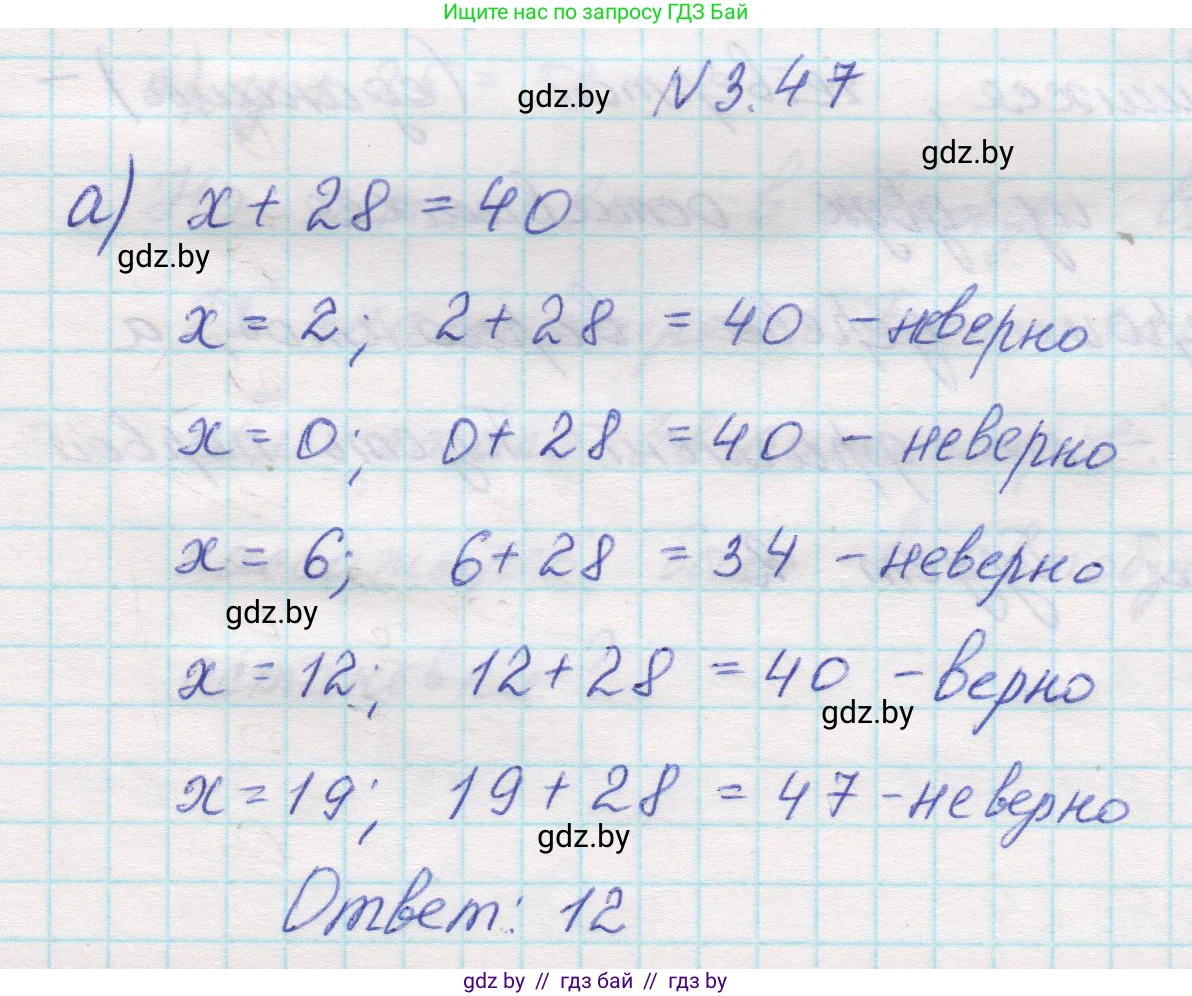 Ищите нас по запросу ГДЗ Бай
gdz.by
N 3.47
gdz.by
а) x + 28 = 40
gdz.by
x = 2; 2 + 28 = 40 - неверно
x = 0; 0 + 28 = 40 - неверно
x = 6; 6 + 28 = 34 - неверно
gdz.by
x = 12; 12 + 28 = 40 - верно
gdz.by
x = 19; 19 + 28 = 47 - неверно
gdz.by
Ответ: 12
gdz by // гдз бай // gdz by